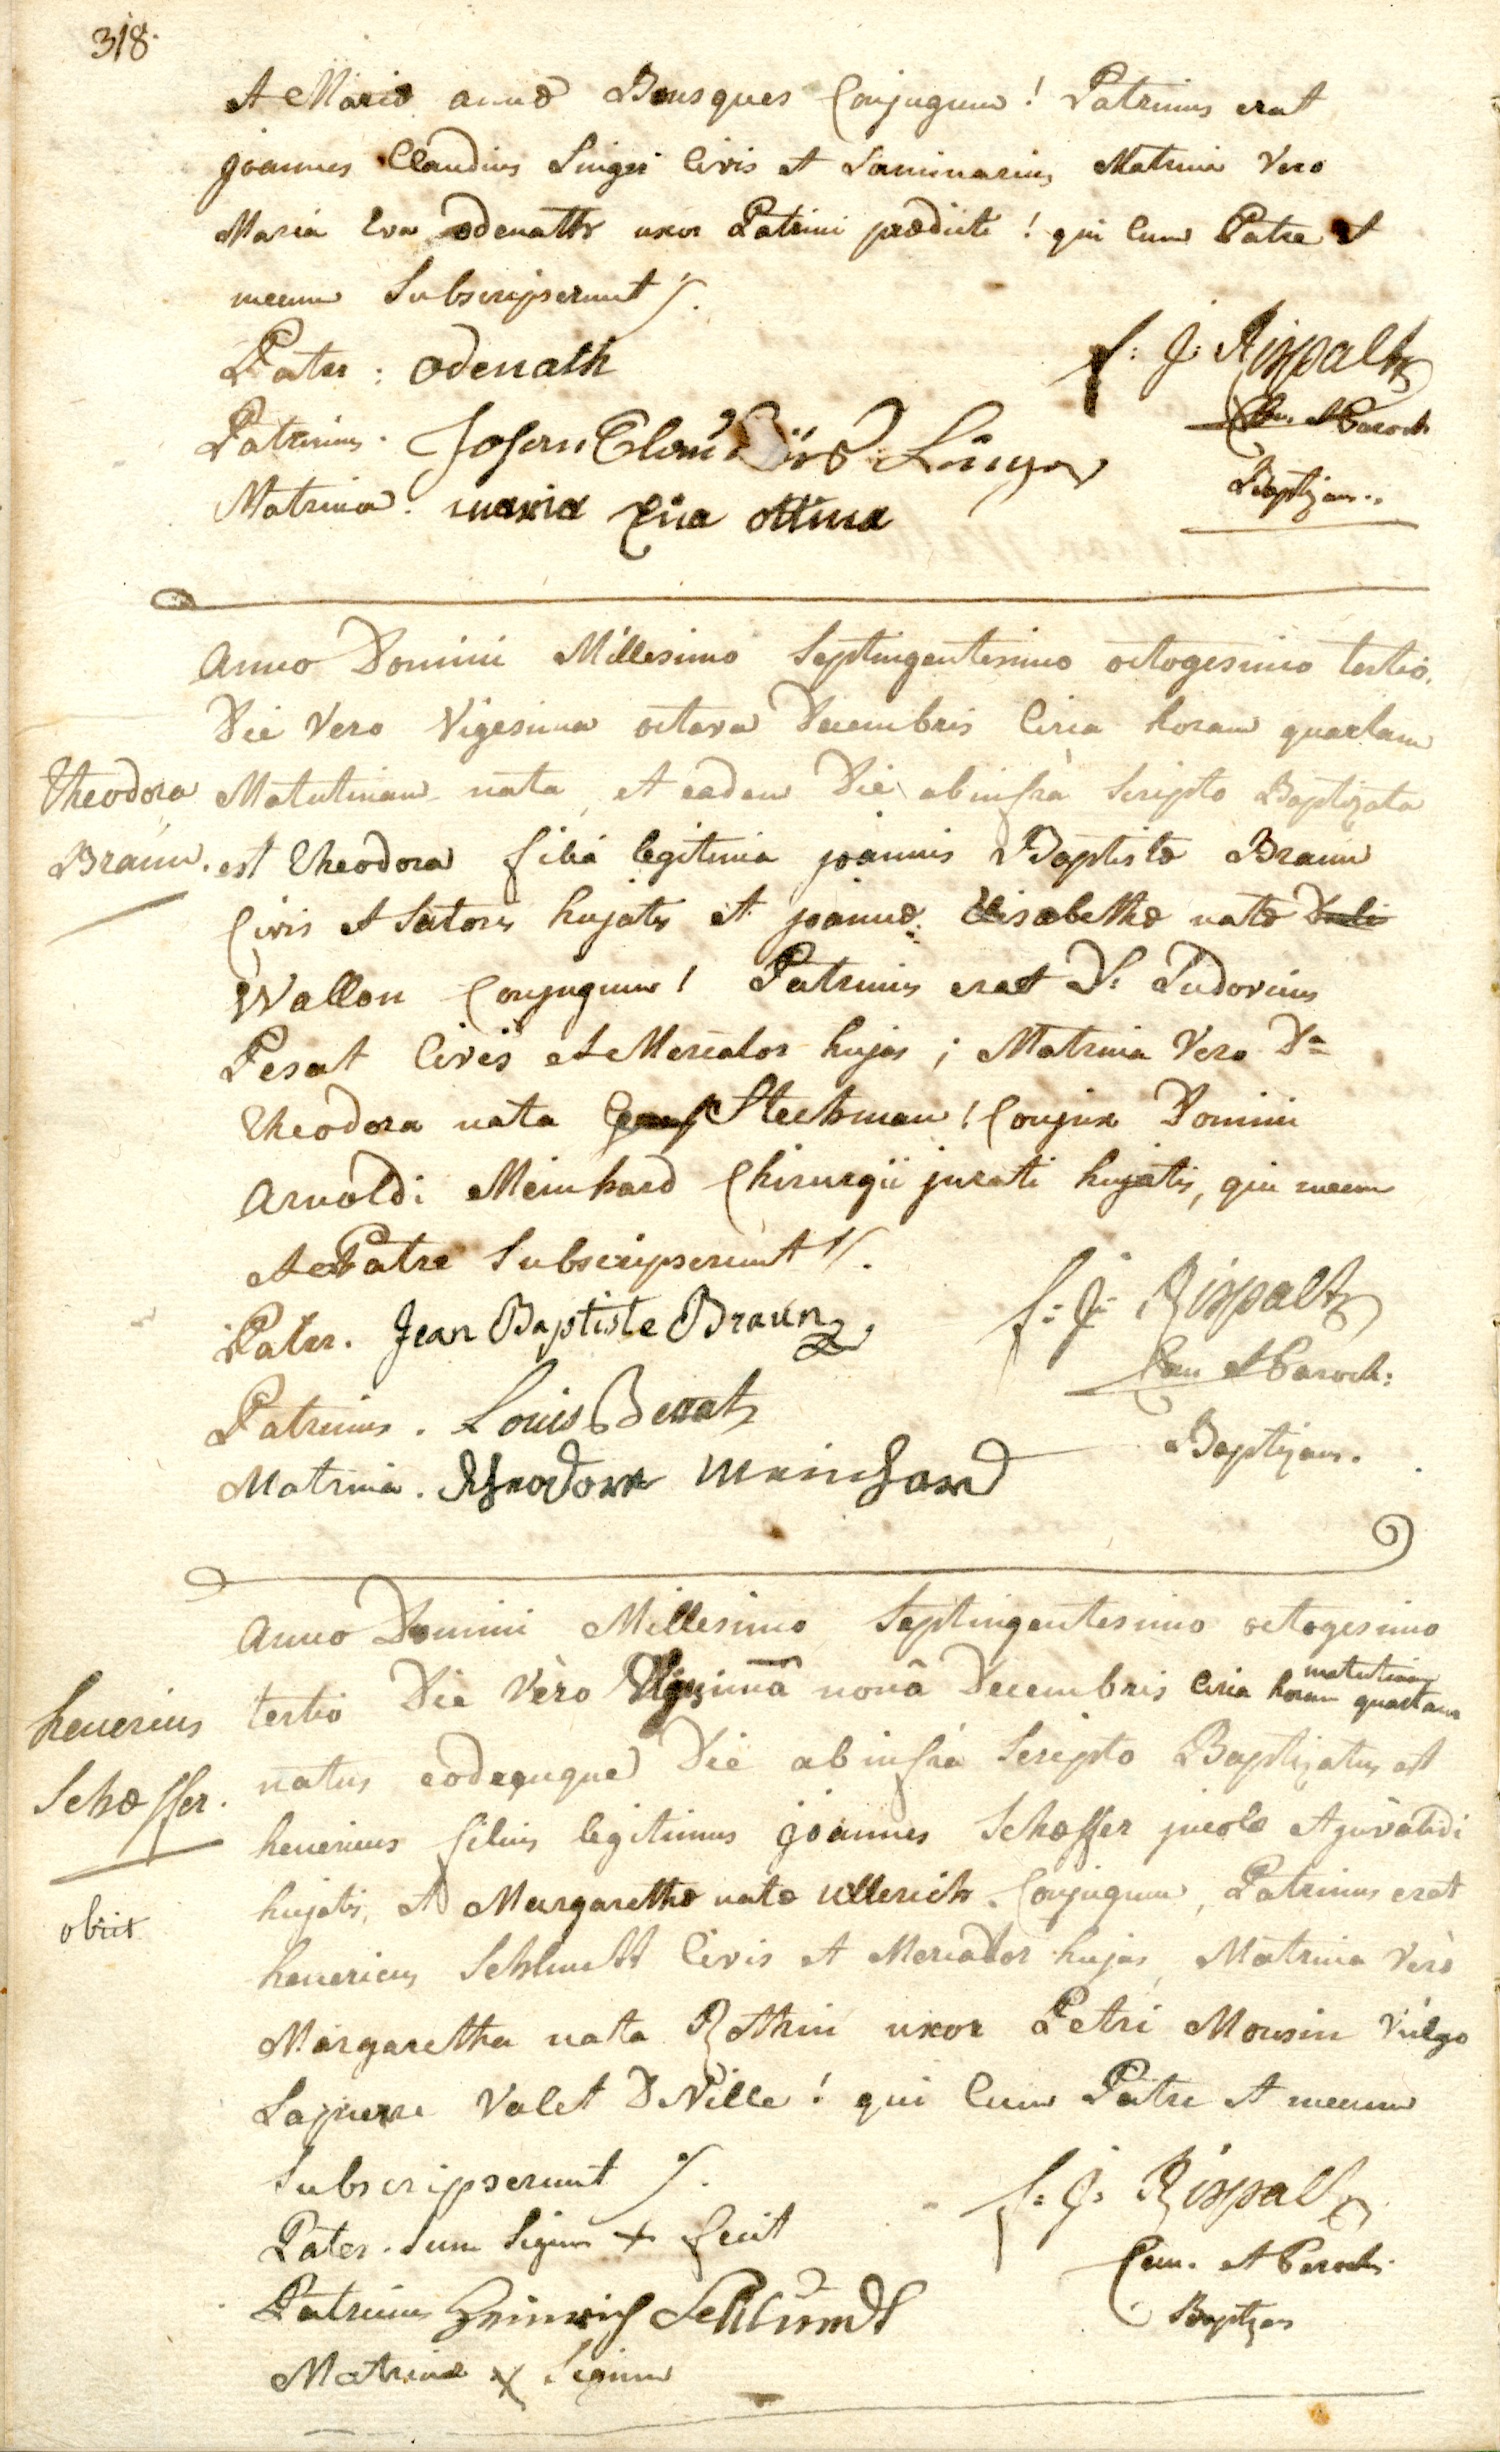 318.
et Mariæ annæ Bousques Conjugum! Patrinus erat
joannes Claudius Singer Civis et Laminarius, Matrina Vero
Maria Eva odenatth uxor Patrini prædicti! qui Cum Patre et
mecum Subscripserunt /.
Pater: odenath
f: J: Rispalt
Can. et Paroch
Patrinus.
Baptizans.
Matrina. maria Eva
Anno Domini Millesimo Septingentesimo octogesimo tertio.
Die Vero Vigesima octava Decembris Circa horam quartam
Theodora
Matutinam nata, et eadem Die ab infrà Scripto Baptizata
Braun.
est Theodora filia legitima joannis Baptistæ Braun
Civis et Satoris hujatis et joannæ Elisabethæ natæ
Wallon Conjugum! Patrinus erat D: Ludovicus
Pesat Civis et Mercator hujas; Matrina Vero Da
Theodora nata Stechman! Conjux Domini
Arnoldi Meinhard Chirurgii jurati hujatis, qui mecum
et Patre Subscripserunt //.
Pater. Jean Baptiste Braun
f: J: Rispalt
Can et Paroch:
Patrinus. Louis
Baptizans.
Matrina. Theodora Meinhard
Anno Domini Millesimo Septingentesimo octogesimo
matutinam
tertio Die Vèro Vigesimâ nonâ Decembris Circa horam quartam
henericus
natus eodemque Die ab infrà Scripto Baptizatus est
Schæffer.
henericus filius legitimus joannes Schæffer incolæ et
hujatis, et Margarethæ natæ Ullerich Conjugum, Patrinus erat
obiit
henericus Schlundt Civis et Mercator hujas, Matrina Verò
Margaretha nata Rothin uxor Petri Mousin Vulgo
Lapierre Valet D Ville! qui Cum Patre et mecum
Subscripserunt /.
f: J: Rispalt
Pater. Sum Signum + fecit
Can. et Paroch.
Patrinus Heinrich Schlundt
Baptizans
Matrina x Signum